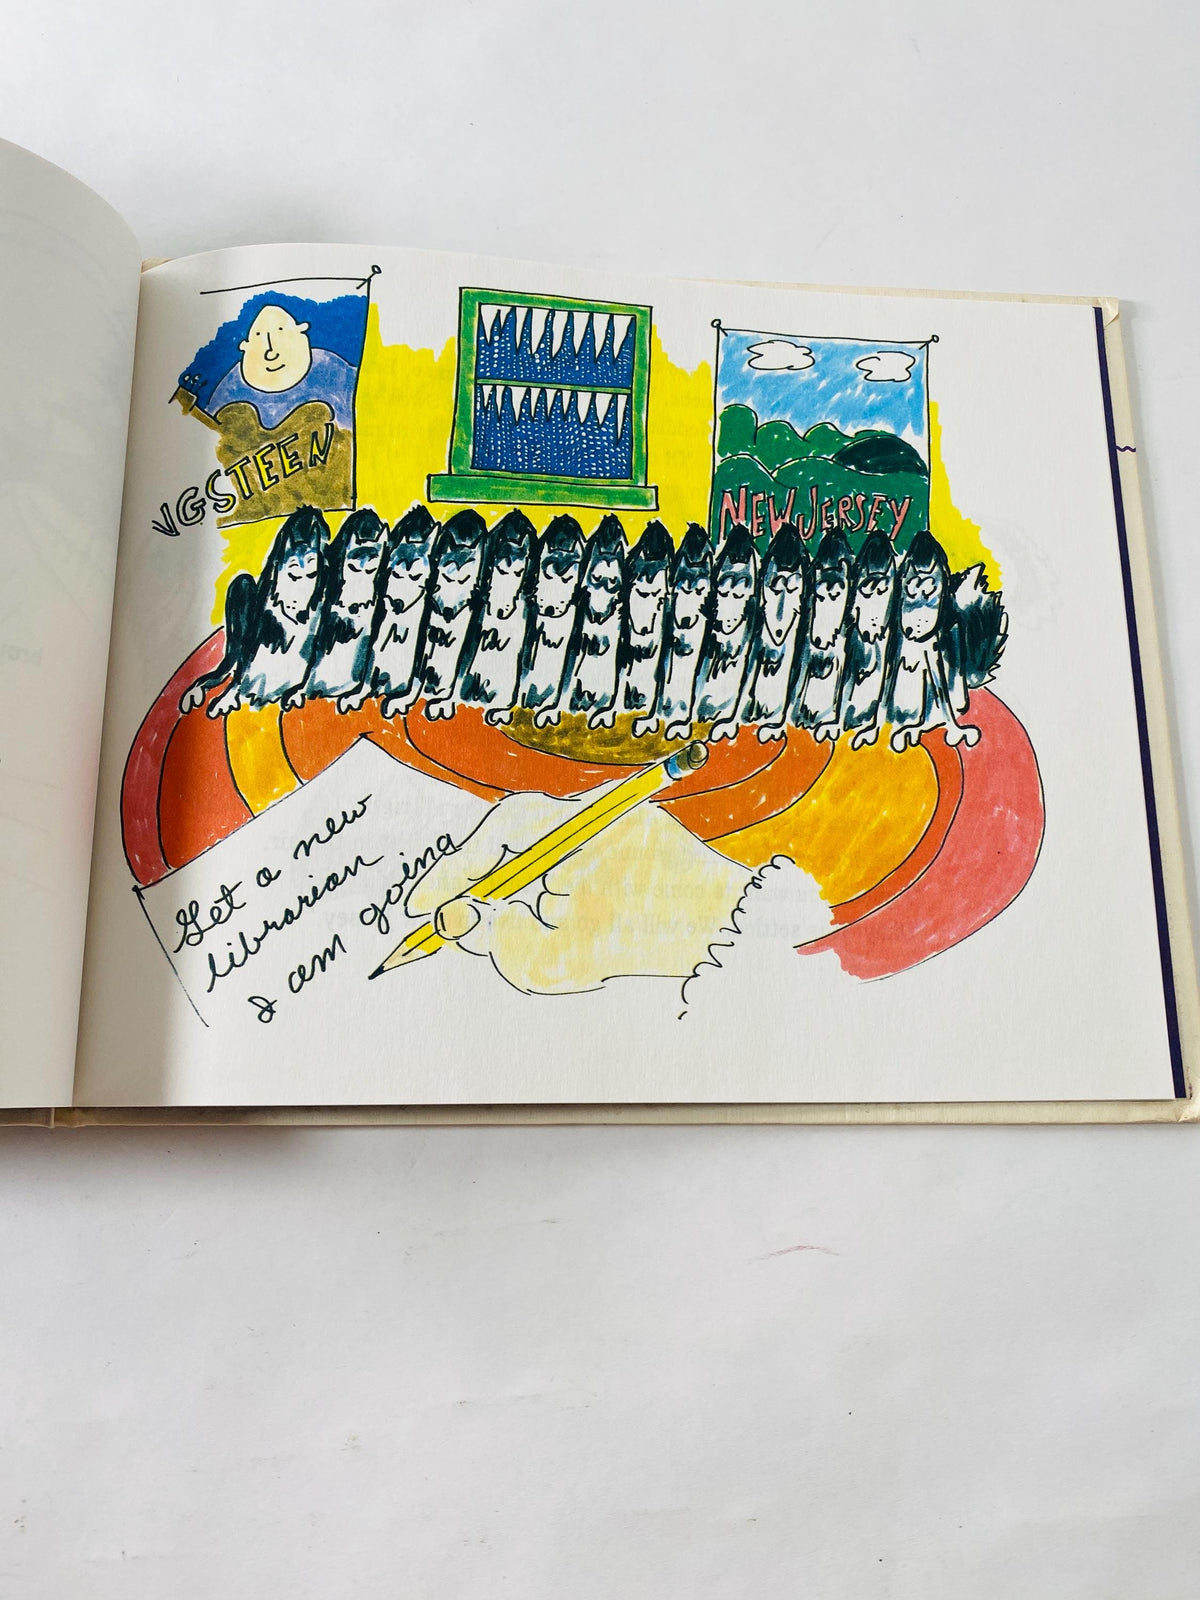 VGSTEEN
NEW JERSEY
Get a new
librarian
I am going